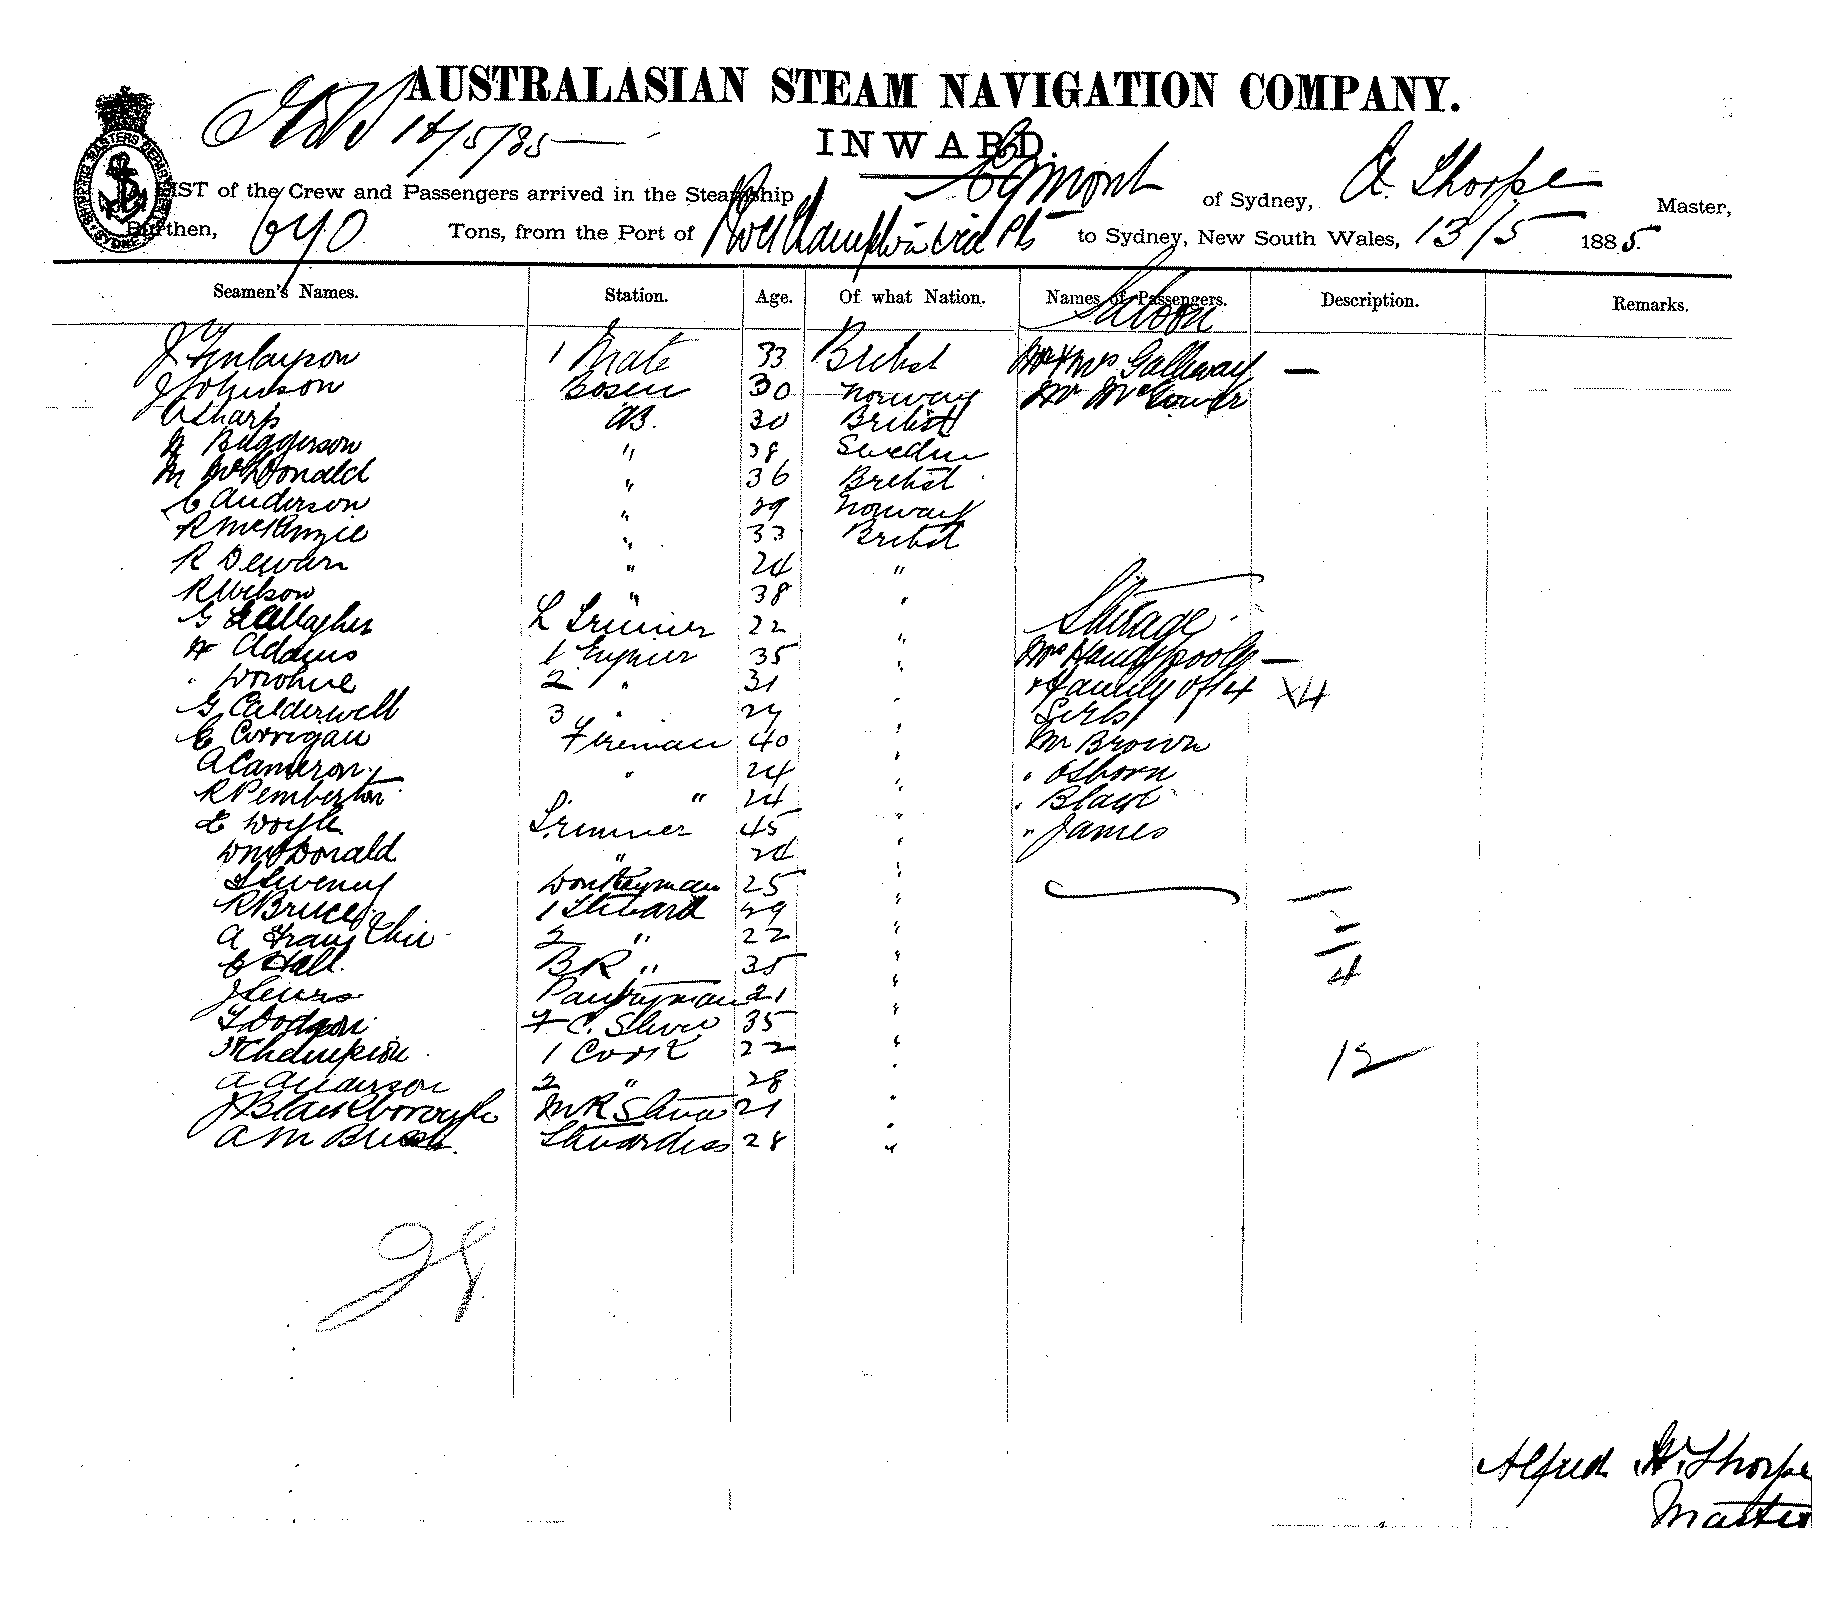 AUSTRALASIAN STEAM NAVIGATION COMPANY.
14/5/85
INWARD.
LIST of the Crew and Passengers arrived in the Steamship Egmont of Sydney, A. Thorpe Master,
Burthen, 640 Tons, from the Port of Rockhampton via Pts to Sydney, New South Wales, 13/5 1885.
Seamen's Names. Station. Age. Of what Nation. Names of Passengers. Description. Remarks.
Saloon
J Finlayson 1 Mate 33 British Mr & Mrs Galloway —
J Johnson Bosun 30 Norway Mr McGower
A Sharp AB. 30 British
Buggerson " 28 Sweden
M McDonald " 36 British
C Anderson " 29 Norway
R McKenzie " 33 British
R Dewar " 24 "
R Wilson " 38 "
Steerage
G Gallagher L Trimmer 22 "
W Adams 1 Engineer 35 " Mrs —
" Donohue 2 " 31 " & family of 4 x4
G Calderwell 3 " 24 " Girls
C Corrigan Fireman 40 " Mr Brown
A Cameron " 24 " " Osborn
R Pemberton " 24 " " Black
E Doyle Trimmer 45 " " James
D McDonald " 24 "
T Sweeney Donkeyman 25 "
R Bruce 1 Steward 29 "
A 2 " 22 "
C Hall BR " 35 " 4
J Lewis Pantryman 21 "
T Dodgson F C. Stwd 35 "
W Champion 1 Cook 22 " 12
A Anderson 2 " 28 "
J Blackborough MR Stwd 21 "
A M Stewardess 28 "
28
Alfred W. Thorpe
Master